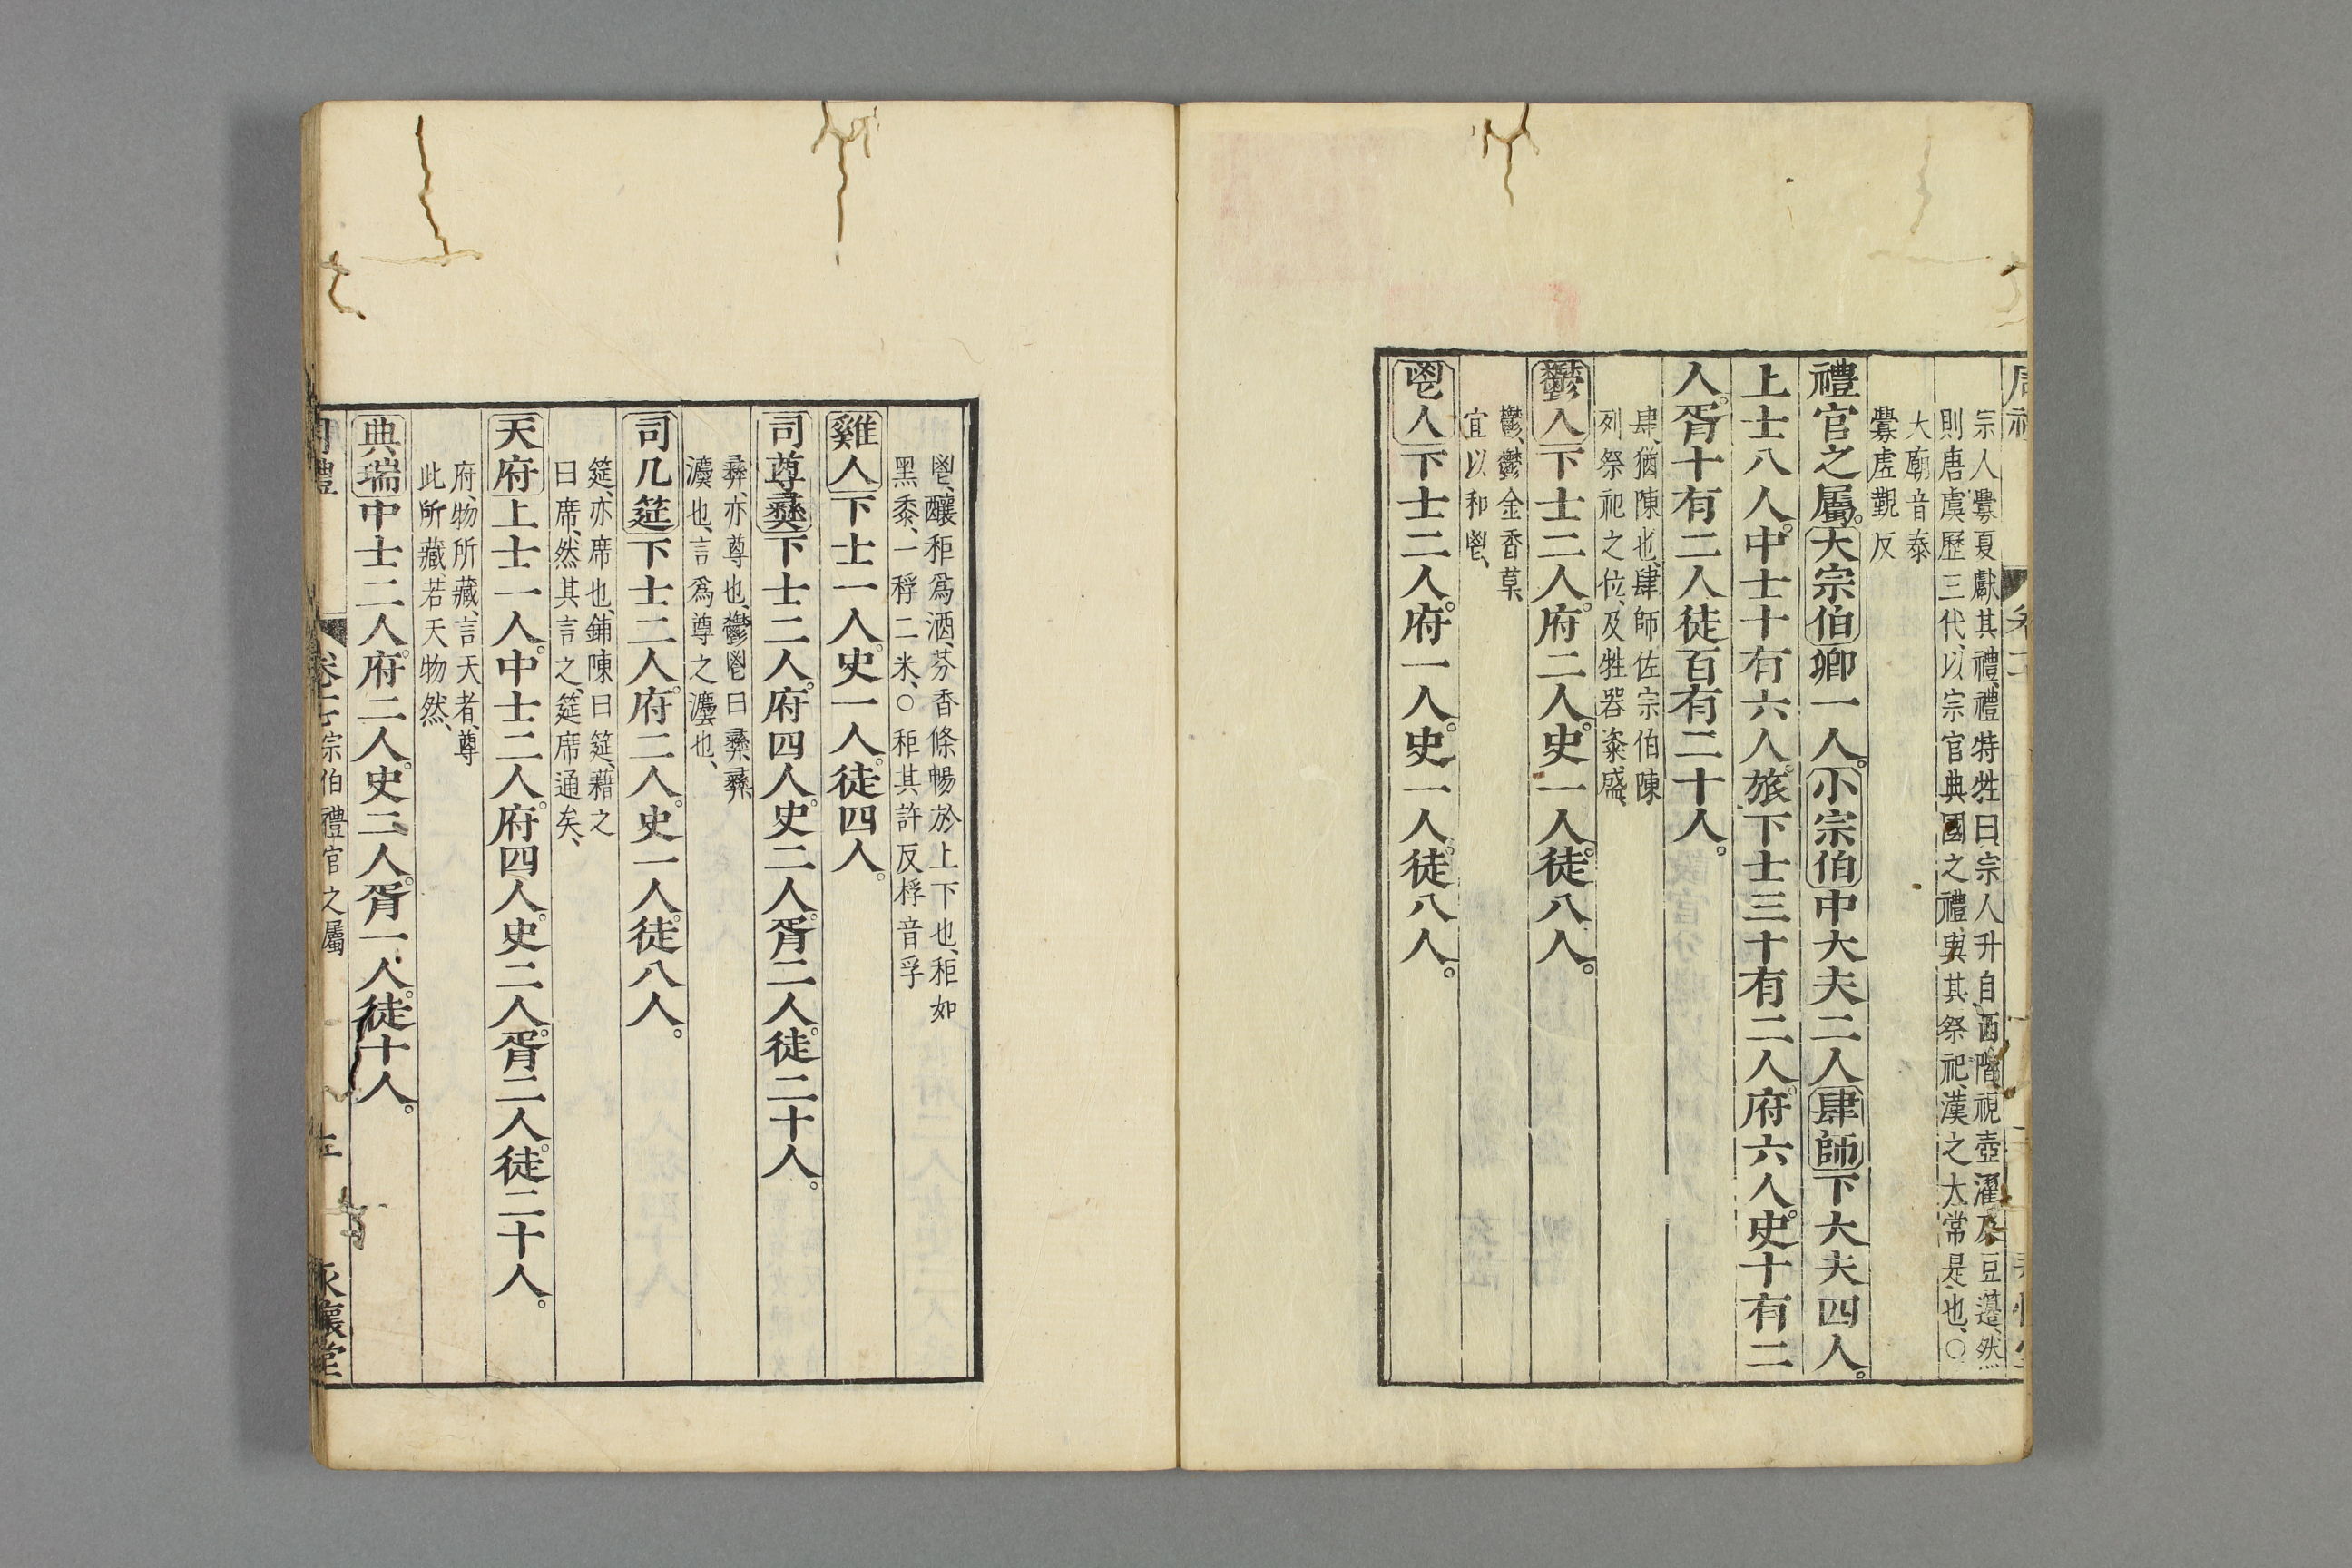 宗人釁夏獻其禮、禮特牲曰宗人升自西階、視壺濯及豆籩、然
則唐虞歷三代、以宗官典國之禮、與其祭祀、漢之大常是也、○
大廟音泰
釁虛觀反
禮官之屬。大宗伯卿一人。小宗伯中大夫二人肆師下大夫四人。
上士八人。中士十有六人。旅下士三十有二人府六人。史十有二
人。胥十有二人徒百有二十人。
肆、猶陳也、肆師佐宗伯陳
列祭祀之位、及牲器粢盛、
鬱人下士二人。府二人。史一人。徒八人。
鬱、鬱金香草、
宜以和鬯、
鬯人下士二人。府一人。史一人。徒八人。
鬯、釀秬爲酒、芬香條暢於上下也、秬如
黑黍、一稃二米、○秬其許反稃音孚
雞人下士一人。史一人。徒四人。
司尊彝下士二人。府四人。史二人。胥二人。徒二十人。
彝、亦尊也、鬱鬯曰彝、彝
灋也、言爲尊之灋也、
司几筵下士二人。府二人。史一人。徒八人。
筵、亦席也、鋪陳曰筵、藉之
曰席、然其言之、筵席通矣、
天府上士一人。中士二人。府四人。史二人。胥二人。徒二十人。
府、物所藏、言天者、尊
此所藏若天物然、
典瑞中士二人。府二人。史二人。胥一人。徒十人。
周禮 卷十七 宗伯禮官之屬 五 永懷堂